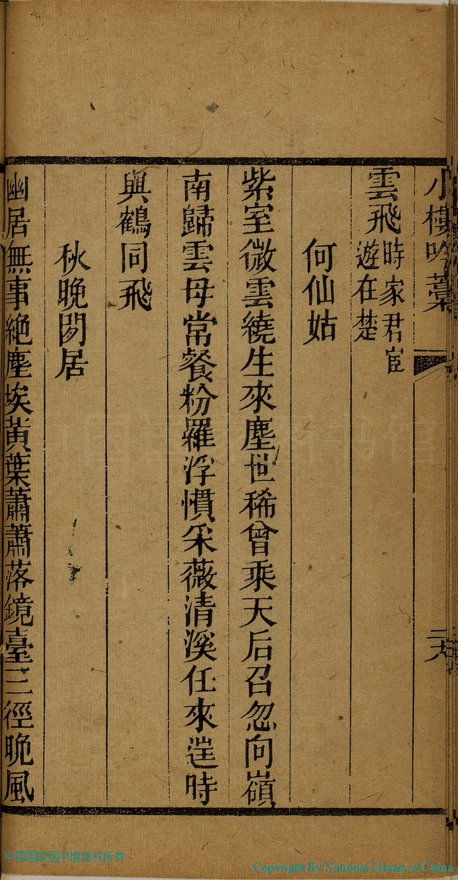 小樓吟藁
雲飛時家君宦
遊在楚
何仙姑
紫室微雲繞生來塵世稀曾乘天后召忽向嶺
南歸雲母常餐粉羅浮慣采薇清溪任來逞時
與鶴同飛
秋晚閒居
幽居無事絶塵埃黃葉蕭蕭落鏡臺三徑晚風
Copyright By National Library of China